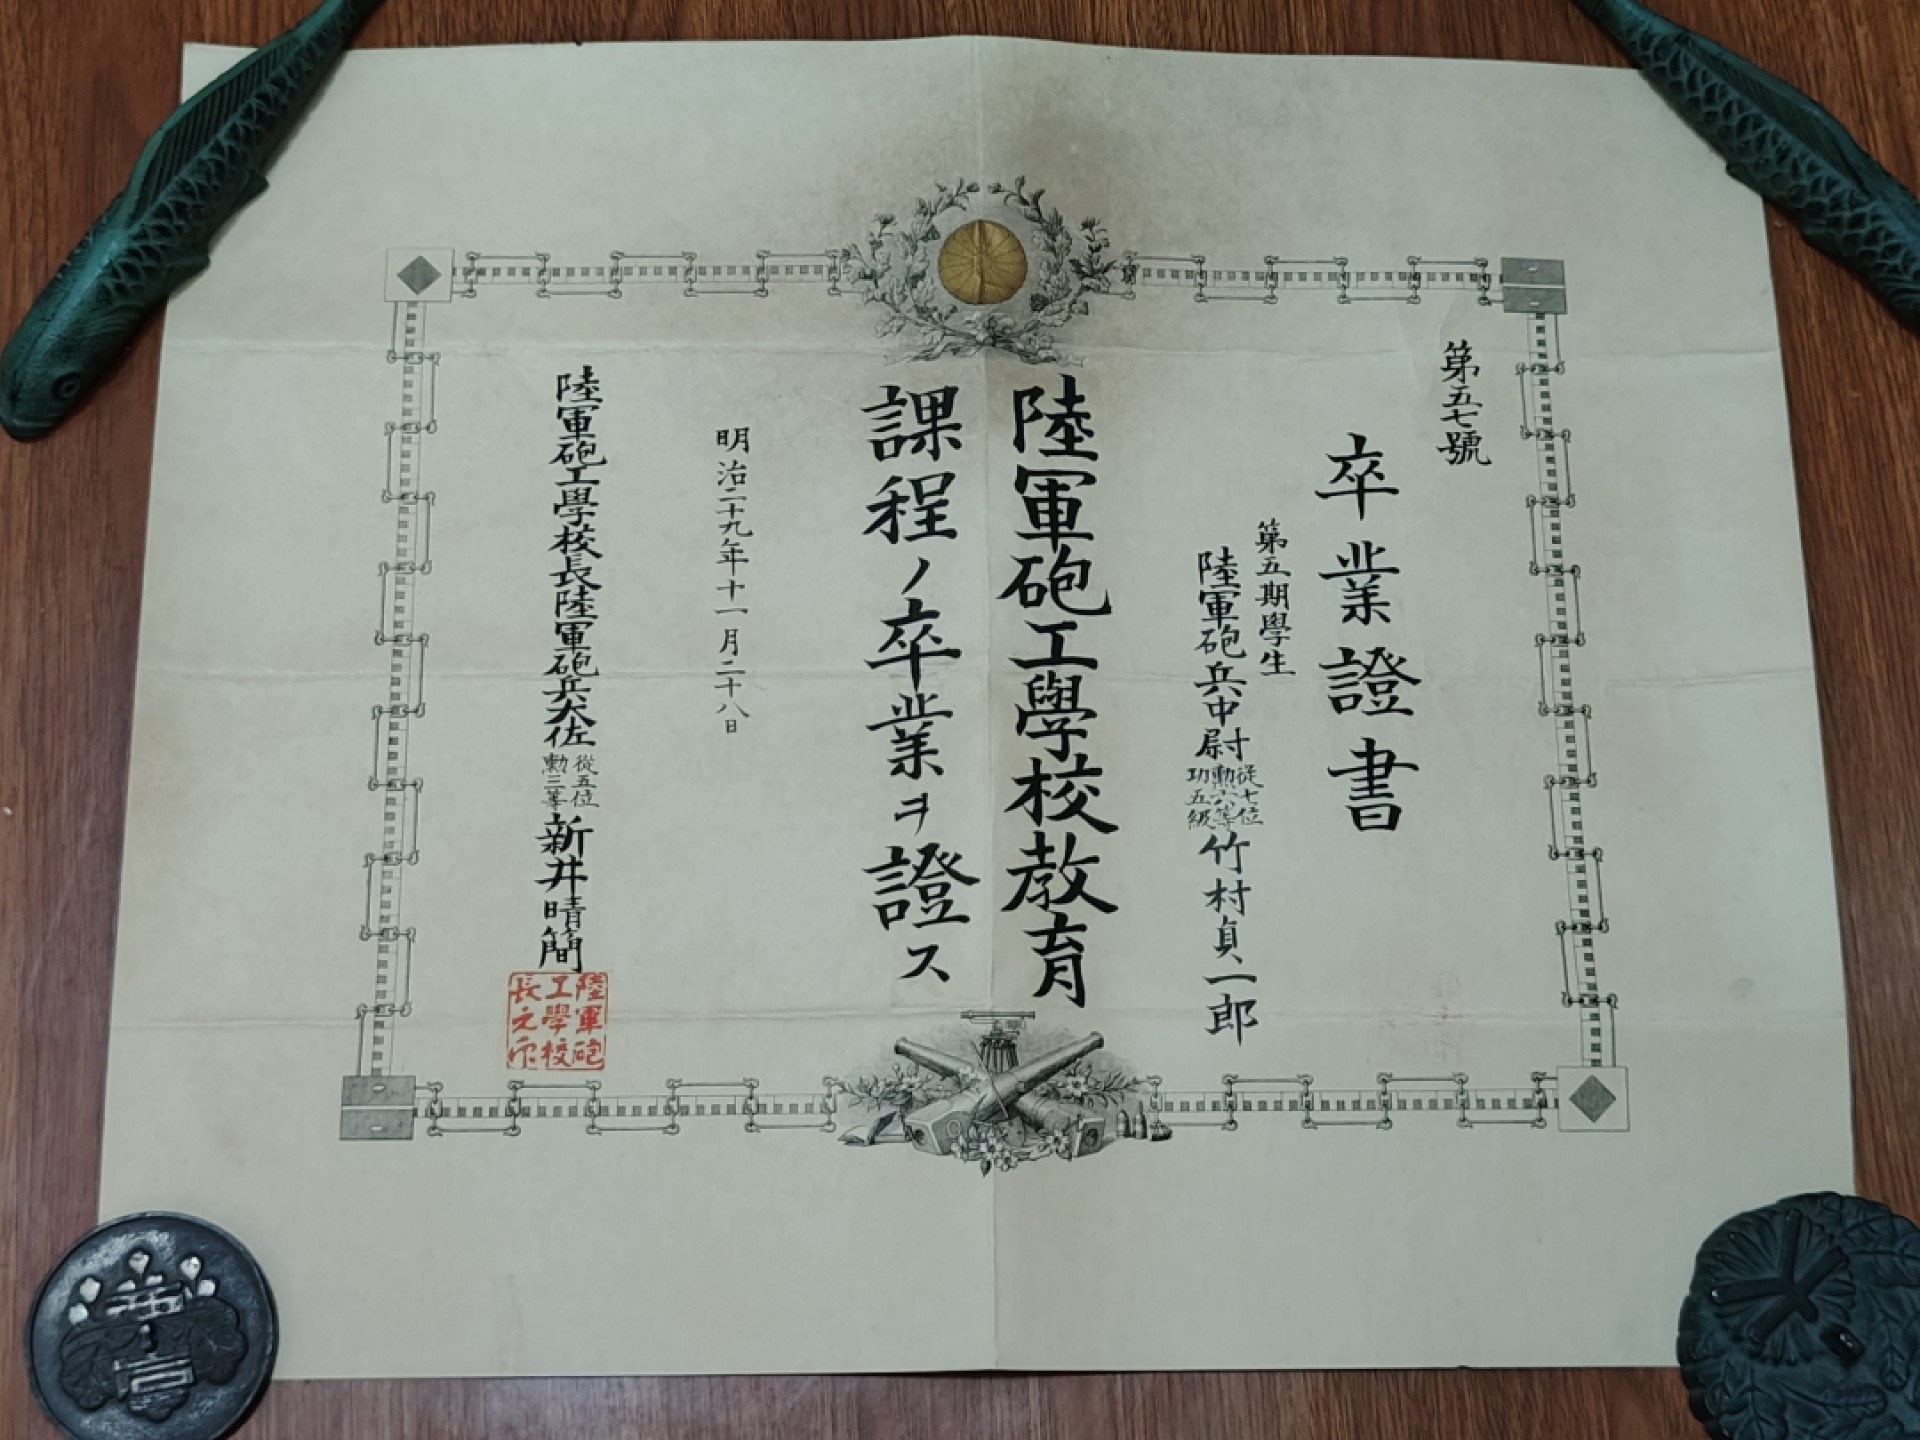 第五七號
卒業證書
第五期學生
陸軍砲兵中尉
從七位
勲六等
功五級
竹村貞一郎
陸軍砲工學校教育
課程ノ卒業ヲ證ス
明治二十九年十一月二十八日
陸軍砲工學校長陸軍砲兵大佐
從五位
勲三等
新井晴簡
陸軍砲
工學校
長之印